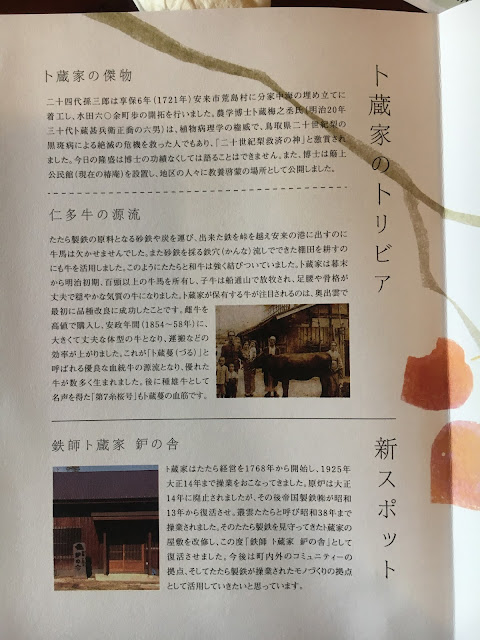 卜蔵家のトリビア
卜蔵家の傑物
二十四代孫三郎は享保6年(1721年)安来市荒島村に分家中海の埋め立てに
着工し、水田六〇余町歩の開拓を行いました。農学博士卜蔵梅之丞氏(明治20年
三十代卜蔵甚兵衛正喬の六男)は、植物病理学の権威で、鳥取県二十世紀梨の
黒斑病による絶滅の危機を救った人でもあり、「二十世紀梨救済の神」と激賞され
ました。今日の隆盛は博士の功績なくしては語ることはできません。また、博士は
公民館(現在の椿庵)を設置し、地区の人々に教養啓蒙の場所として公開しました。
仁多牛の源流
たたら製鉄の原料となる砂鉄や炭を運び、出来た鉄を峠を越え安来の港に出すのに
牛馬は欠かせませんでした。また砂鉄を採る鉄穴(かんな)流しでできた棚田を耕すの
にも牛を活用しました。このようにたたらと和牛は強く結びついていました。卜蔵家は幕末
から明治初期、百頭以上の牛馬を所有し、子牛は船通山で放牧され、足腰や骨格が
丈夫で穏やかな気質の牛になりました。卜蔵家が保有する牛が注目されるのは、奥出雲で
最初に品種改良に成功したことです。雌牛を
高値で購入し、安政年間(1854〜58年)に、
大きくて丈夫な体型の牛となり、運搬などの
効率が上がりました。これが「卜蔵蔓(づる)」と
呼ばれる優良な血統牛の源流となり、優れた
牛が数多く生まれました。後に種雄牛として
名声を得た「第7糸桜号」も卜蔵蔓の血筋です。
新スポット
鉄師卜蔵家 鈩の舎
卜蔵家はたたら経営を1768年から開始し、1925年
大正14年まで操業をおこなってきました。原鈩は大正
14年に廃止されましたが、その後帝国製鉄㈱が昭和
13年から復活させ、叢雲たたらと呼び昭和38年まで
操業されました。そのたたら製鉄を見守ってきた卜蔵家の
屋敷を改修し、この度『鉄師 卜蔵家 鈩の舎』として
復活させました。今後は町内外のコミュニティーの
拠点、そしてたたら製鉄が操業されたモノづくりの拠点
として活用していきたいと思っています。